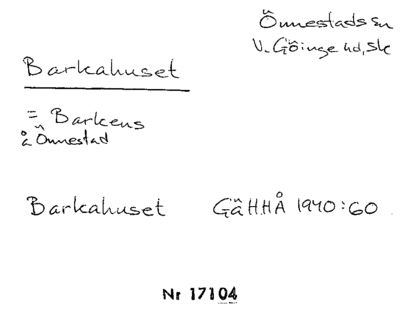 Önnestads sn
V. Göinge hd, Sk
Barkahuset
= Barkens
å Önnestad
Barkahuset GäHHÅ 1940:60
Nr 17104